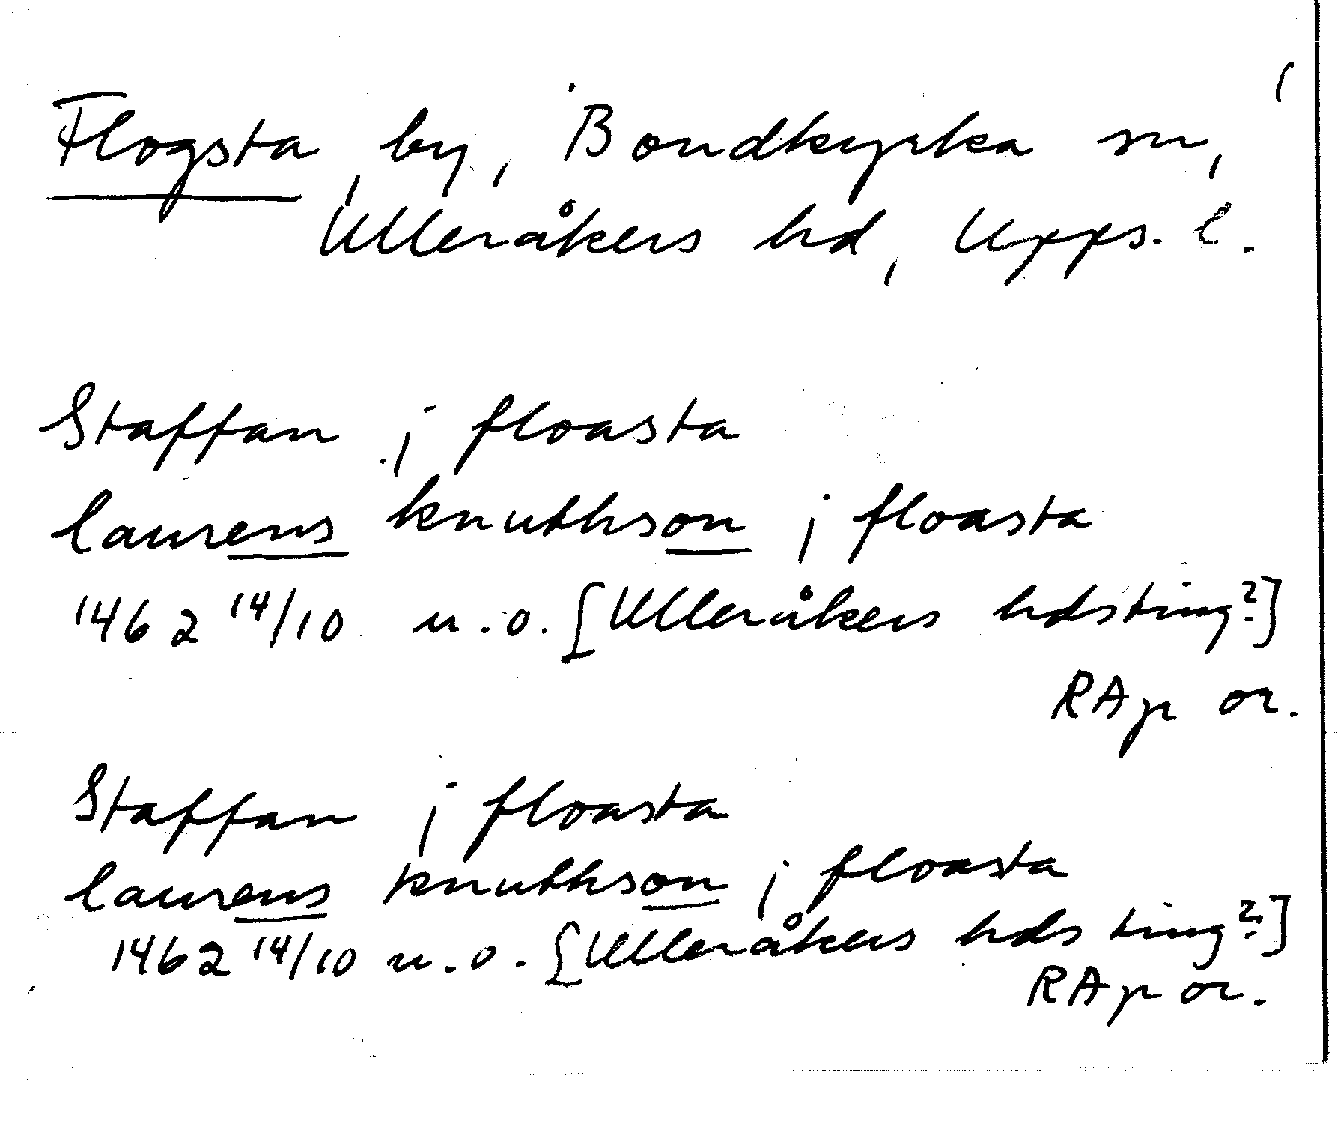 1
Flogsta, by, Bondkyrka sn,
Ulleråkers hd, Upps. l.
Staffan j floasta
laurens knuthson j floasta
1462 14/10 u.o. [Ulleråkers hdsting?]
RAp or.
Staffan j floasta
laurens knuthson j floasta
1462 14/10 u.o. [Ulleråkers hds ting?]
RAp or.